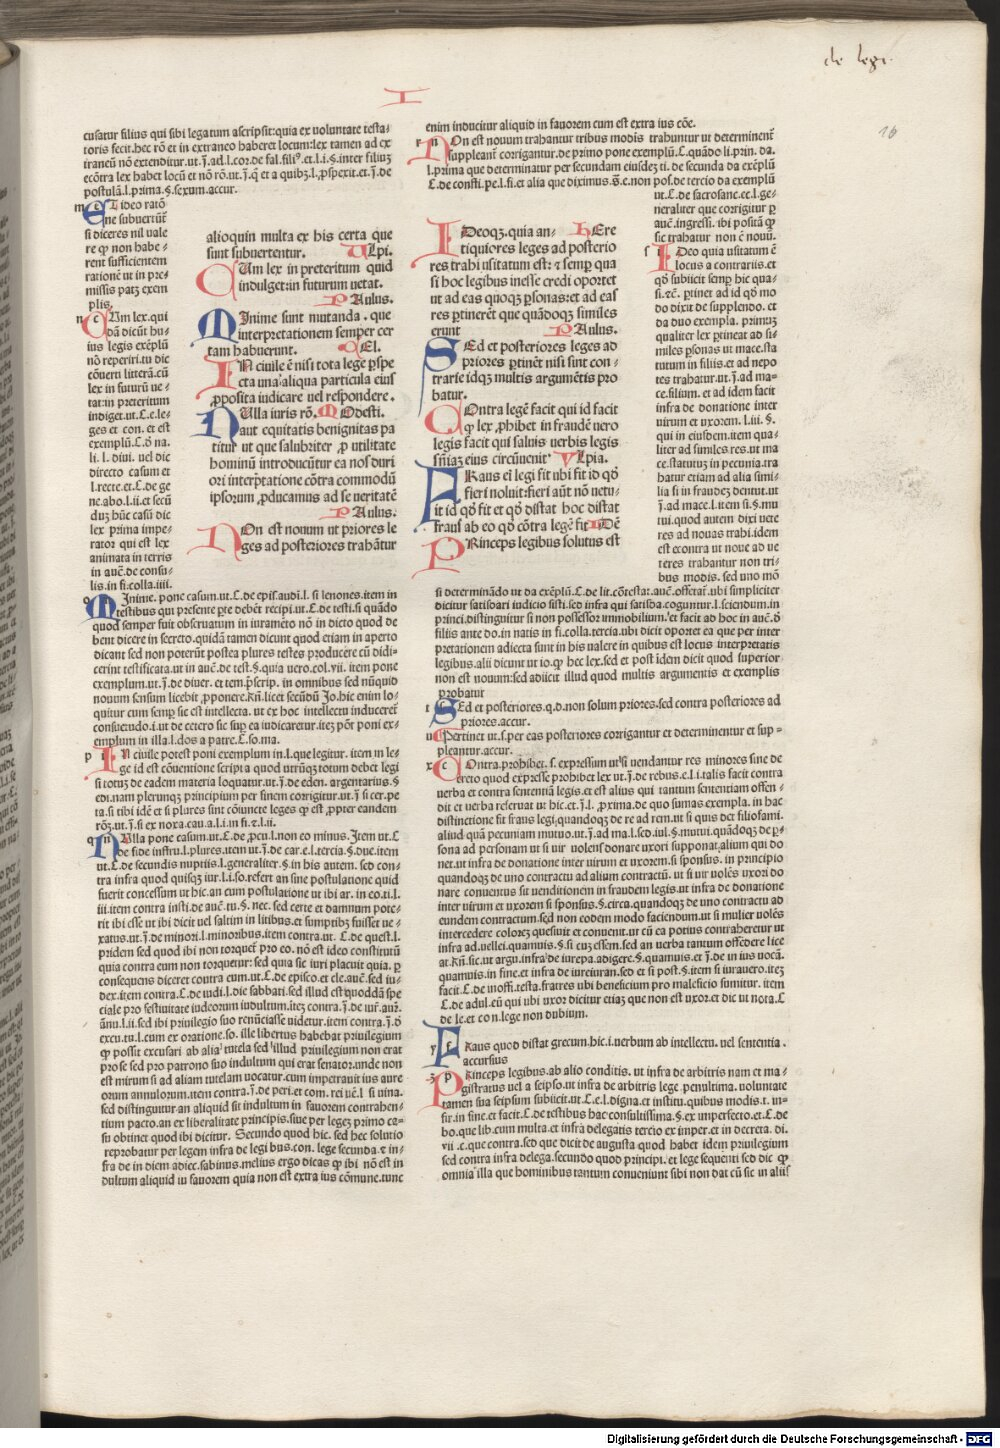 de legi.
16
I
cusatur filius qui sibi legatum ascripsit:quia ex uoluntate testa⸗
toris fecit.hec rō et in extraneo haberet locum:lex tamen ad ex
traneū nō extenditur.ut.
ecōtra lex habet locū et nō rō.ut.
postulā.l.prima.§.sexum.accur.
m e T ideo ratō
ne subuertūt̄
si diceres nil uale
re qp non habe⸗
rent sufficientem
rationē ut in pre⸗
missis patz exem
plis.
n c Um lex.qui
dā dicūt hu⸗
ius legis exēplū
nō reperiri.tu dic
cōuern litterā.cū
lex in futurū ue⸗
tat:in preteritum
indiget.ut.C.e.le⸗
ges et con. et est
exemplū.C.ō na.
li. l. diui. uel dic
directo casum et
l.recte.et.C.de ge
ne.abo.l.ii.et secū
duz hūc casū dic
lex prima impe⸗
rator qui est lex
animata in terris
in auc̄.de consu⸗
lis.in fi.colla.iiii.
alioquin multa ex his certa que
sunt subuertentur. Ulpi.
CUm lex in preteritum quid
indulget:in futurum uetat.
PAulus.
MInime sunt mutanda . que
interpretationem semper cer
tam habuerunt. CEl.
IN ciuile ē nisi tota lege p̱spe
cta una' aliqua particula eius
p̱posita iudicare uel respondere.
NUlla iuris rō. MOdesti.
aut equitatis benignitas pa
titur ut que salubriter p̱ utilitate
hominū introducūtur ea nos duri
ori interp̄tatione cōtra commodū
ipsorum p̱ducamus ad seueritatē
PAulus.
NOn est nouum ut priores le
ges ad posteriores trahātur
enim inducitur aliquid in fauorem cum est extra ius cōe.
r n On est nouum trahantur tribus modis trahuntur ut determinent̄
suppleant̄ corrigantur.de primo pone exemplū.C.quādo li.prin.da.
l.prima que determinatur per secundam eiusdez ti.de secunda da exēplū
C.de consti.pe.l.fi.et alia que diximus.s̄.e.non pos.de tercio da exemplū
ut.C.de sacrosanc.ec.l.ge⸗
neraliter que corrigitur p̱
auc̄.ingressi. ibi positā qp
sic trahatur non ē nouū.
s i Deo quia usitatum ē
locus a contrariis.et
qō subiicit semp̱ hic qua⸗
si.⁊c̄. p̱tinet ad id qō mo
do dixit de supplendo. et
da duo exempla. primuz
qualiter lex p̱tineat ad si⸗
miles p̱sonas ut mace.sta
tutum in filiis.et ad nepo
tes trahatur.ut.j̄.ad ma⸗
ce.filium. et ad idem facit
infra de donatione inter
uirum et uxorem. l.iii. §.
qui in eiusdem.item qua⸗
liter ad similes res.ut ma
ce.statutuz in pecunia.tra
hatur etiam ad alia simi⸗
lia si in fraudez dentut.ut
j̄.ad mace.l.item si.§.mu
tui.quod autem dixi uete
res ad nouas trahi.idem
est econtra ut noue ad ue
teres trahantur non tri⸗
bus modis. sed uno mō
IDeoqz.quia an⸗ HEre
tiquiores leges ad posterio
res trahi usitatum est: ⁊ semp̱ qua
si hoc legibus inesse credi oportet
ut ad eas quoqz p̱sonas:et ad eas
res p̱tinerēt que quādoqz similes
erunt PAulus.
SEd et posteriores leges ad
priores p̱tinēt nisi sint con⸗
trarie idqz multis argumētis pro
batur.
COntra legē facit qui id facit
qp lex p̱hibet in fraudē uero
legis facit qui saluis uerbis legis
sn̄iaz eius circūuenit Ulpia.
FRaus eī legi fit ubi fit id qō
fieri noluit:fieri aūt nō uetu⸗
it id qō fit et qō distat hoc distat
fraus ab eo qō cōtra legē fit IDē
PRinceps legibus solutus est
o m Inime. ponc casum.ut.C.de epis.audi.l.si lenones.item in
testibus qui presente p̱te debēt recipi.ut.C.de testi.si quādo
quod semper fuit obseruatum in iuramēto nō in dicto quod de
bent dicere in secreto.quidā tamen dicunt quod etiam in aperto
dicant sed non poterūt postea plures testes producere cū didi⸗
cerint testificata.ut in auc̄.de test.§.quia uero.col.vii. item pone
exemplum.ut.j̄.de diuer. et tem.p̄scrip. in omnibus sed nūquid
nouum sensum licebit p̱ponere.Rn̄.licet secūdū Jo.hic enim lo⸗
quitur cum semp̱ sic est intellecta. ut ex hoc intellectu induceret̄
consuetudo.i.ut de cetero sic sup̱ ea iudicaretur.itez pōt poni ex⸗
emplum in illa.l.dos a patre.C.so.ma.
p i N ciuile potest poni exemplum in.l.que legitur. item in le⸗
ge id est cōuentione scripta quod utrūqz totum debet legi
si totuz de eadem materia loquatur.ut.j̄.de eden. argentarius.§
edi.nam plerunqz principium per finem corrigitur.ut j̄ si cer.pe
ta.si tibi idē et si plures sint cōiuncte leges qp est p̱pter eandem
rōz.ut.j̄.si ex noxa.cau.a.l.i.in fi.⁊ l.ii.
q n Ulla pone casum.ut.C.de p̱cu.l.non eo minus.Item ut.C
de fide instru.l.plures.item ut.j̄.de car.e.l.tercia.§.due.item
ut.C.de secundis nuptiis.l.generaliter.§.in his autem. sed con⸗
tra infra quod quisqz iur.l.i.so.refert an sine postulatione quid
fuerit concessum ut hic.an cum postulatione ut ibi ar. in eo.ti.l.
iii.item contra insti.de auc̄.tu.§. nec.sed certe et damnum pote⸗
rit ibi esse ut ibi dicit uel saltim in litibus.et sumptibz fuisset ue⸗
xatus.ut.j̄.de minori.l.minoribus.item contra.ut. C.de quest.l.
pridem sed quod ibi non torquet̄ pro eo.nō est ideo constitutū
quia contra eum non torquetur: sed quia sic iuri placuit quia. p̱
consequens diceret contra eum.ut.C.de episco.et cle.auc̄.sed iu⸗
dex.item contra.C.de iudi.l.die sabbati.sed illud est quoddā spe
ciale pro festiuitate iudeorum indultum.itez contra.j̄.de iur̄.aur̄.
ānu.l.ii.sed ibi priuilegio suo renūciasse uidetur.item contra.j̄.ō
excu.tu.l.cum ex oratione.so. ille libertus habebat priuilegium
qp possit excusari ab alia tutela sed illud priuilegium non erat
pro se sed pro patrono suo indultum qui erat senator.unde non
est mirum si ad aliam tutelam uocatur.cum imperauit ius aure
orum annulorum.item contra.j̄.de peti.et com. rei uē.l si uina.
sed distinguitur an aliquid sit indultum in fauorem contrahen⸗
tium pacto.an ex liberalitate principis.siue per legez primo ca⸗
su obtinet quod ibi dicitur. Secundo quod hic. sed hec solutio
reprobatur per legem infra de legi bus.con. lege secunda.⁊ in⸗
fra de in diem adiec.sabinus.melius ergo dicas qp ibi nō est in
dultum aliquid in fauorem quia non est extra ius cōmune.tunc
si determinādo ut da exēplū.C.de lit.cōtesta:.auc̄.offerat̄.ubi simpliciter
dicitur satisdari iudicio sisti.sed infra qui satisda.coguntur.l.sciendum.in
princi.distinguitur si non possessor immobilium.et facit ad hoc in auc̄.ō
filiis ante do.in natis in fi.colla.tercia.ubi dicit oportet ea que per inter
pretationem adiecta sunt in his ualere in quibus est locus interpretatis
legibus.alii dicunt ut io.qp hec lex.sed et post idem dicit quod superior
non est nouum:sed adiicit illud quod multis argumentis et exemplis
probatur
t s Ed et posteriores.q.d.non solum priores.sed contra posteriores ad
priores.accur.
u Pertinet ut.s.per eas posteriores corrigantur et determinentur et sup⸗
pleantur.accur.
x c Ontra.prohibet.s.expressim ut si uendantur res minores sine de
creto quod expresse prohibet lex ut.j̄.de rebus.e.l.i.talis facit contra
uerba et contra sententiā legis.et est alius qui tantum sententiam offen⸗
dit et uerba reseruat ut hic.et.j̄.l. p̱xima.de quo sumas exempla. in hac
distinctione fit fraus legi.quandoqz de re ad rem.ut si quis det filiofami.
aliud quā pecuniam mutuo.ut.j̄.ad ma.l.sed.iul.§.mutui.quādoqz de p̱⸗
sona ad personam ut si uir uolens donare uxori supponat.alium qui do
net.ut infra de donatione inter uirum et uxorem.si sponsus. in principio
quandoqz de uno contractu ad alium contractū. ut si uir uolēs uxori do
nare conuentus sit uenditionem in fraudem legis.ut infra de donatione
inter uirum et uxorem si sponsus.§.circa.quandoqz de uno contractu ad
eundem contractum.sed non eodem modo faciendum.ut si mulier uolēs
intercedere colorez quesiuit et conuenit.ut cū ea potius contraheretur ut
infra ad.uellei.quamuis.§.si cuz essem.sed an uerba tantum offēdere lice
at.Rn̄.sic.ut argu.infra de iurepa.adigere.§.quamuis.et j̄.de in ius uocā.
quamuis.in fine.et infra de iureiuran.sed et si post.§.item si iurauero.itez
facit.C.de inoffi.testa.fratres ubi beneficium pro maleficio sumitur. item
C.de adul.eū qui ubi uxor dicitur etiaz que non est uxor.et dic ut nota.C
de le.et con.lege non dubium.
y f Raus quod distat grecum.hic.i.uerbum ab intellectu. uel sententia .
accursius
z p Rinceps legibus.ab alio conditis. ut infra de arbitris nam et ma⸗
gistratus uel a seipso.ut infra de arbitris lege .penultima. uoluntate
tamen sua seipsum subiicit.ut.C.e.l.digna.et institu.quibus modis.t. in⸗
fir.in fine.et facit.C.de testibus hac consultissima.§.ex imperfecto.et.C.de
bo.que lib.cum multa.et infra delegatis tercio ex imper.et in decreta. di.
vii .c.que contra.sed que dicit de augusta quod habet idem priuilegium
sed contra infra delega.secundo quod principi.et lege sequenti sed dic qp
omnia illa que hominibus tantum conueniunt sibi non dat cū sic in aliis
Digitalisierung gefördert durch die Deutsche Forschungsgemeinschaft - DFG